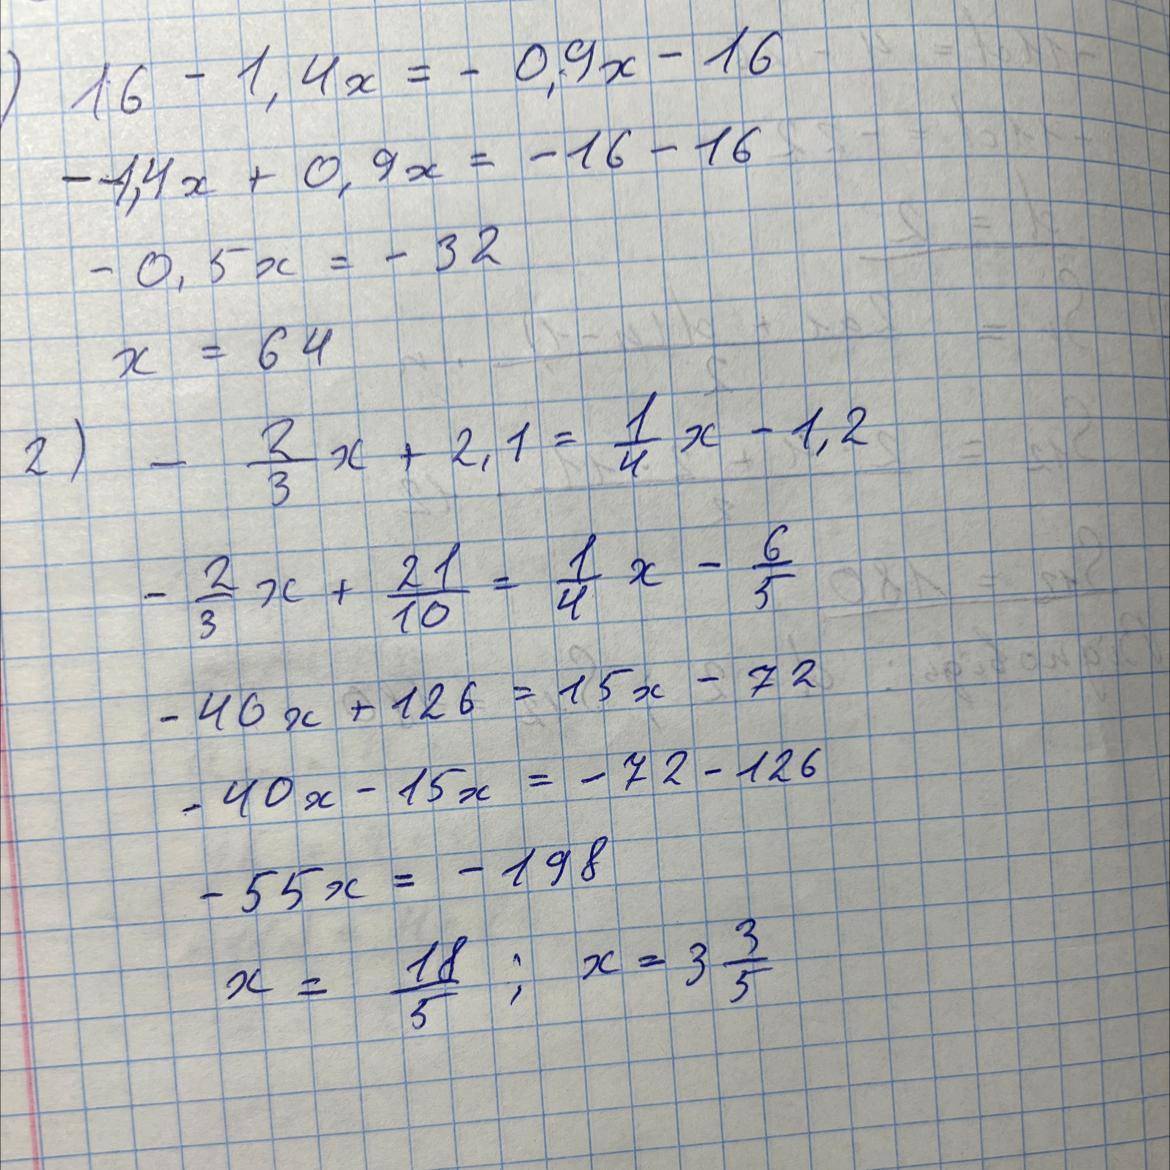 ) 16 - 1,4x = - 0,9x - 16
-1,4x + 0,9x = -16 - 16
- 0,5x = - 32
x = 64
2) - 2/3 x + 2,1 = 1/4 x - 1,2
- 2/3 x + 21/10 = 1/4 x - 6/5
- 40x + 126 = 15x - 72
- 40x - 15x = - 72 - 126
- 55x = - 198
x = 18/5 ; x = 3 3/5